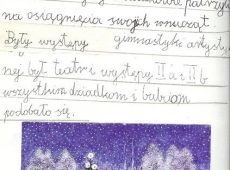 na osiągnięcia swoich wnucząt.
Były występy gimnastyki artysty
nej był teatr i występy II a i II b
wszystkim dziadkom i babciom
podobało się.